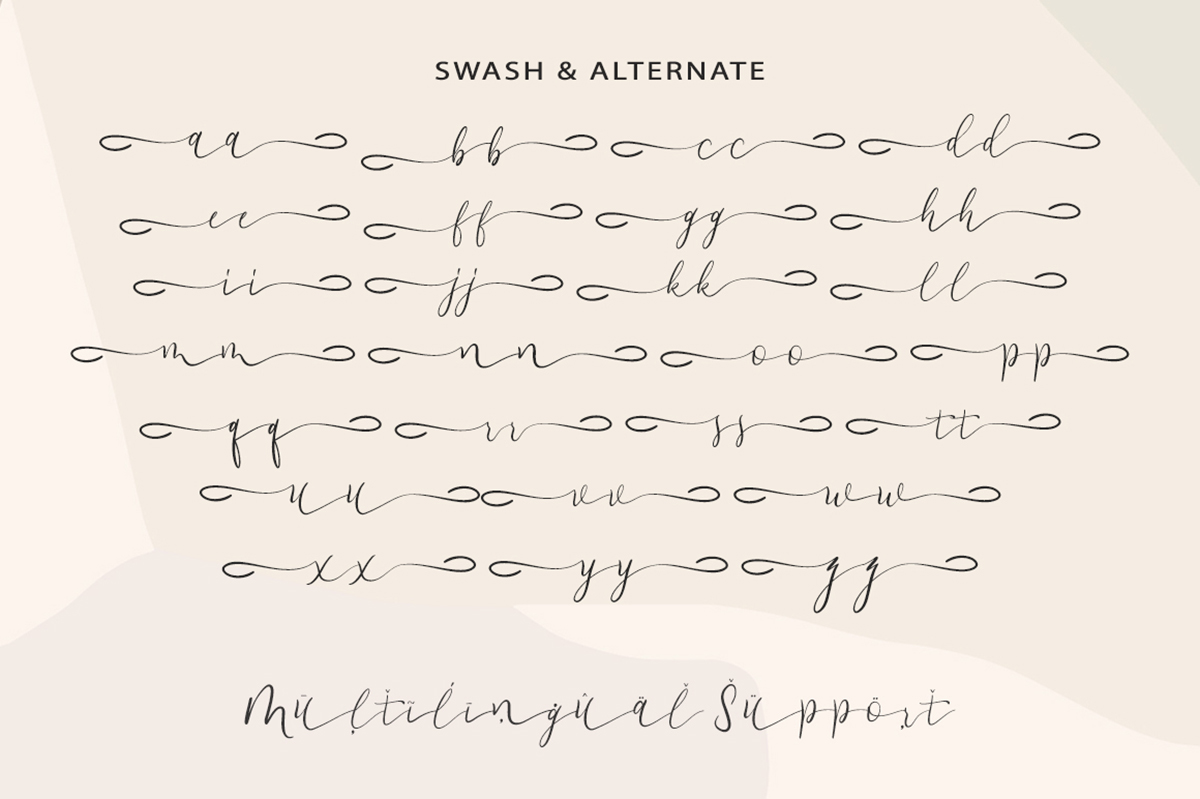 SWASH & ALTERNATE
aa bb cc dd
ee ff gg hh
ii jj kk ll
mm nn oo pp
qq rr ss tt
uu vv ww
xx yy zz
Mūļťīĺīṇġûäľ Šüppöŗť